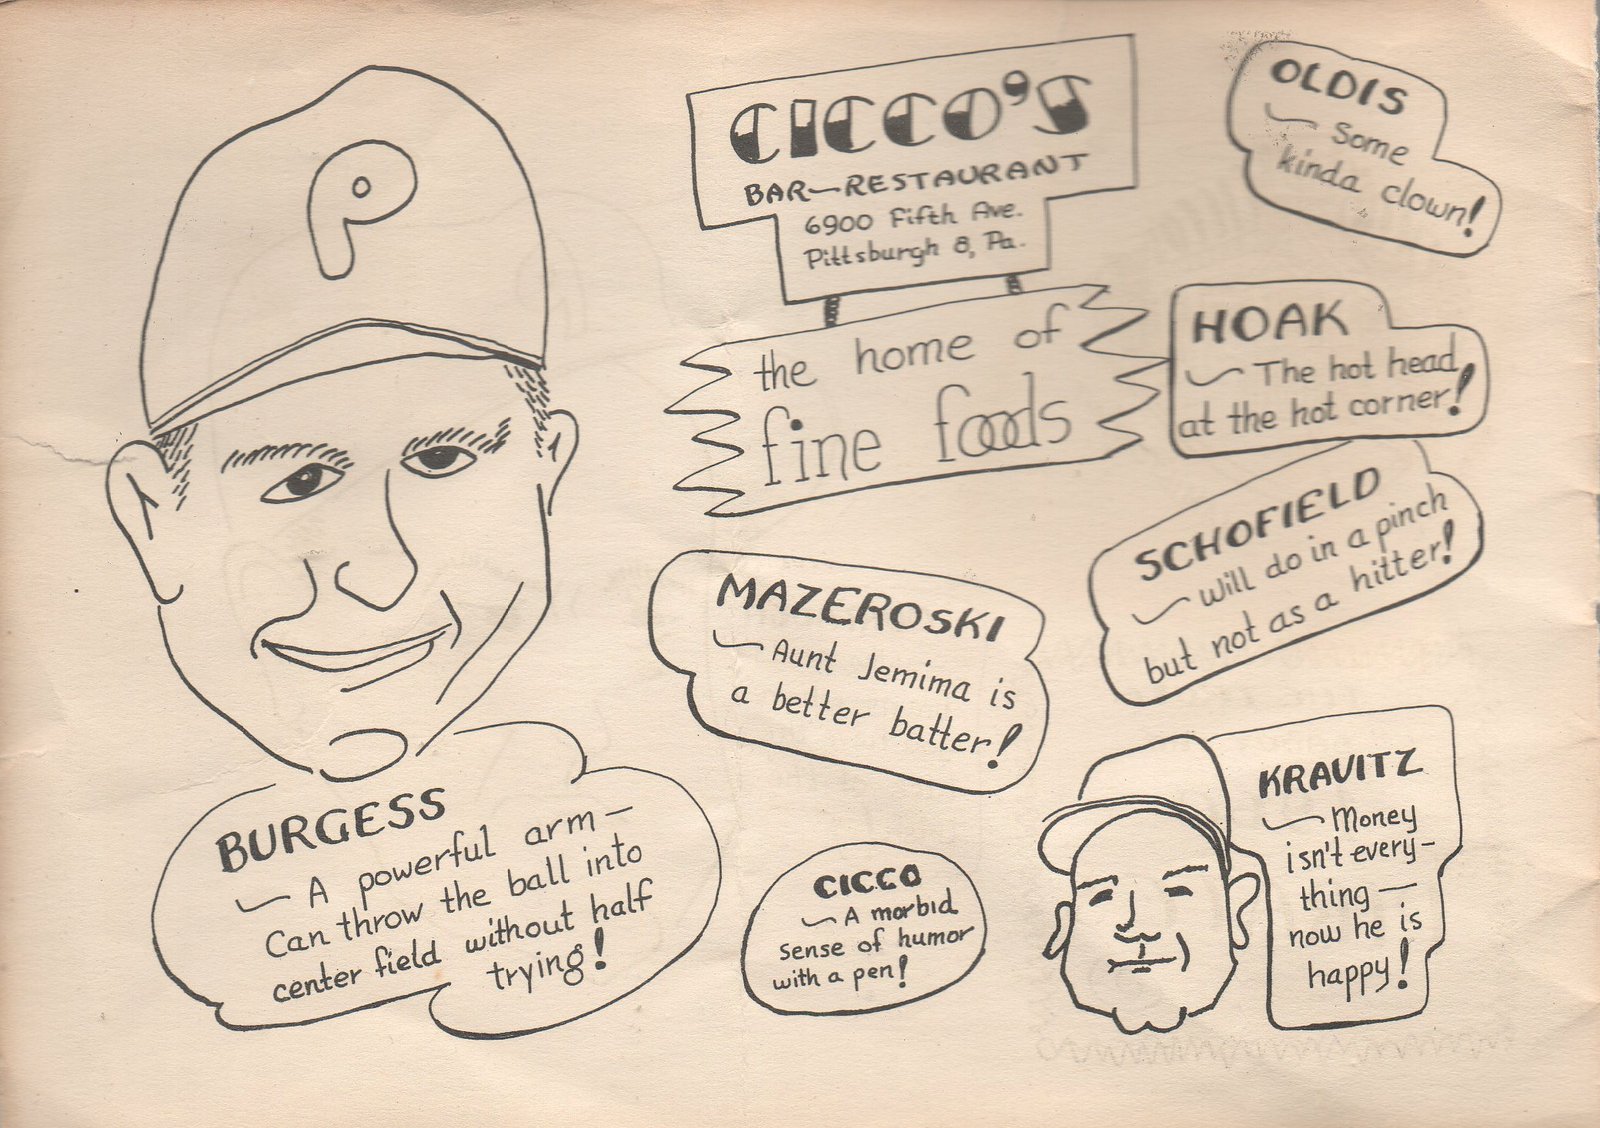 P
CICCO'S
BAR—RESTAURANT
6900 Fifth Ave.
Pittsburgh 8, Pa.
the home of
fine foods
OLDIS
— Some
kinda clown!
HOAK
— The hot head
at the hot corner!
SCHOFIELD
— will do in a pinch
but not as a hitter!
MAZEROSKI
— Aunt Jemima is
a better batter!
BURGESS
— A powerful arm—
Can throw the ball into
center field without half
trying!
CICCO
— A morbid
sense of humor
with a pen!
KRAVITZ
— Money
isn't every-
thing —
now he is
happy!